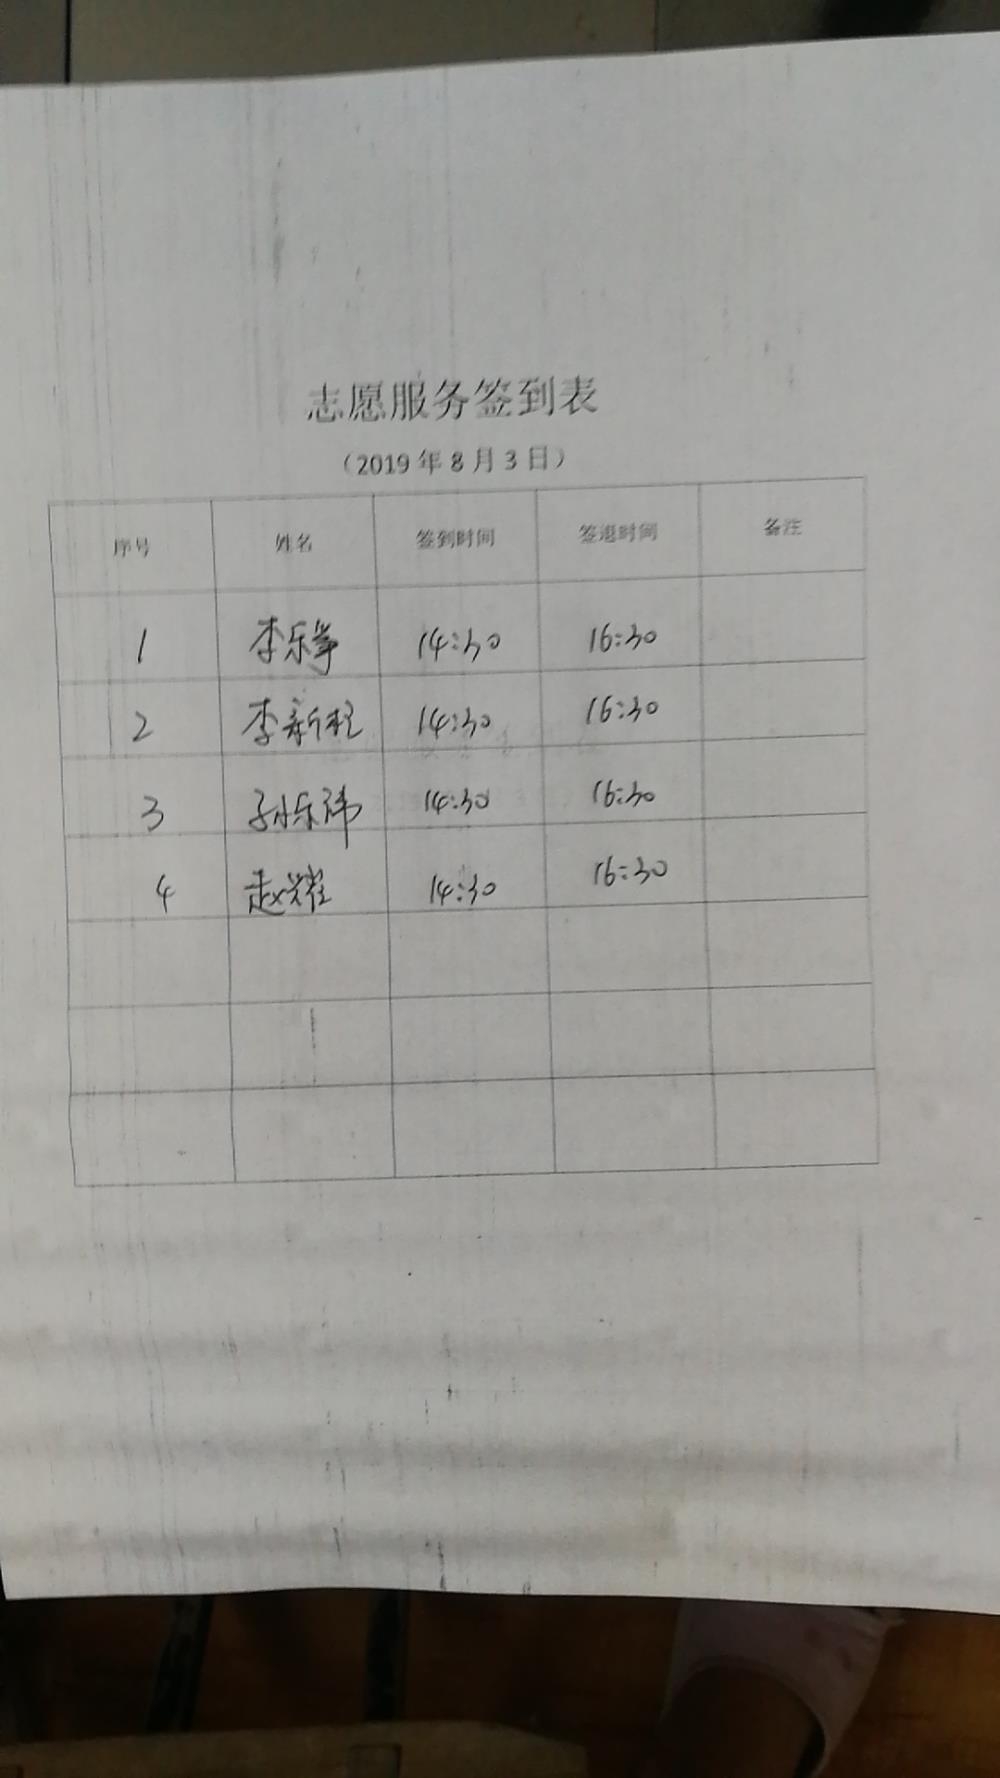 志愿服务签到表
（2019年8月3日）
序号 姓名 签到时间 签退时间 备注
1 李乐 14:30 16:30
2 李新程 14:30 16:30
3 孙乐祎 14:30 16:30
4 赵耀 14:30 16:30